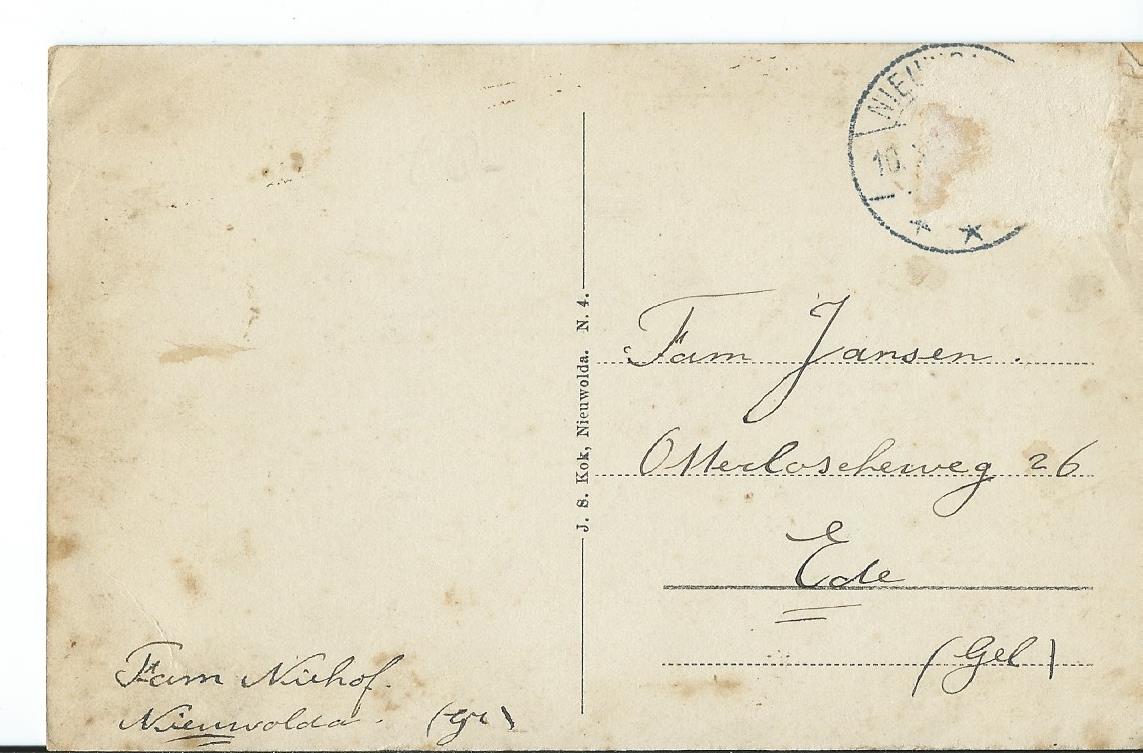 10
J. S. Kok, Nieuwolda. N. 4.
Fam Jansen.
Otterloscheweg 26
Ede
(Gel)
Fam Niehof.
Nieuwolda. (Gr)